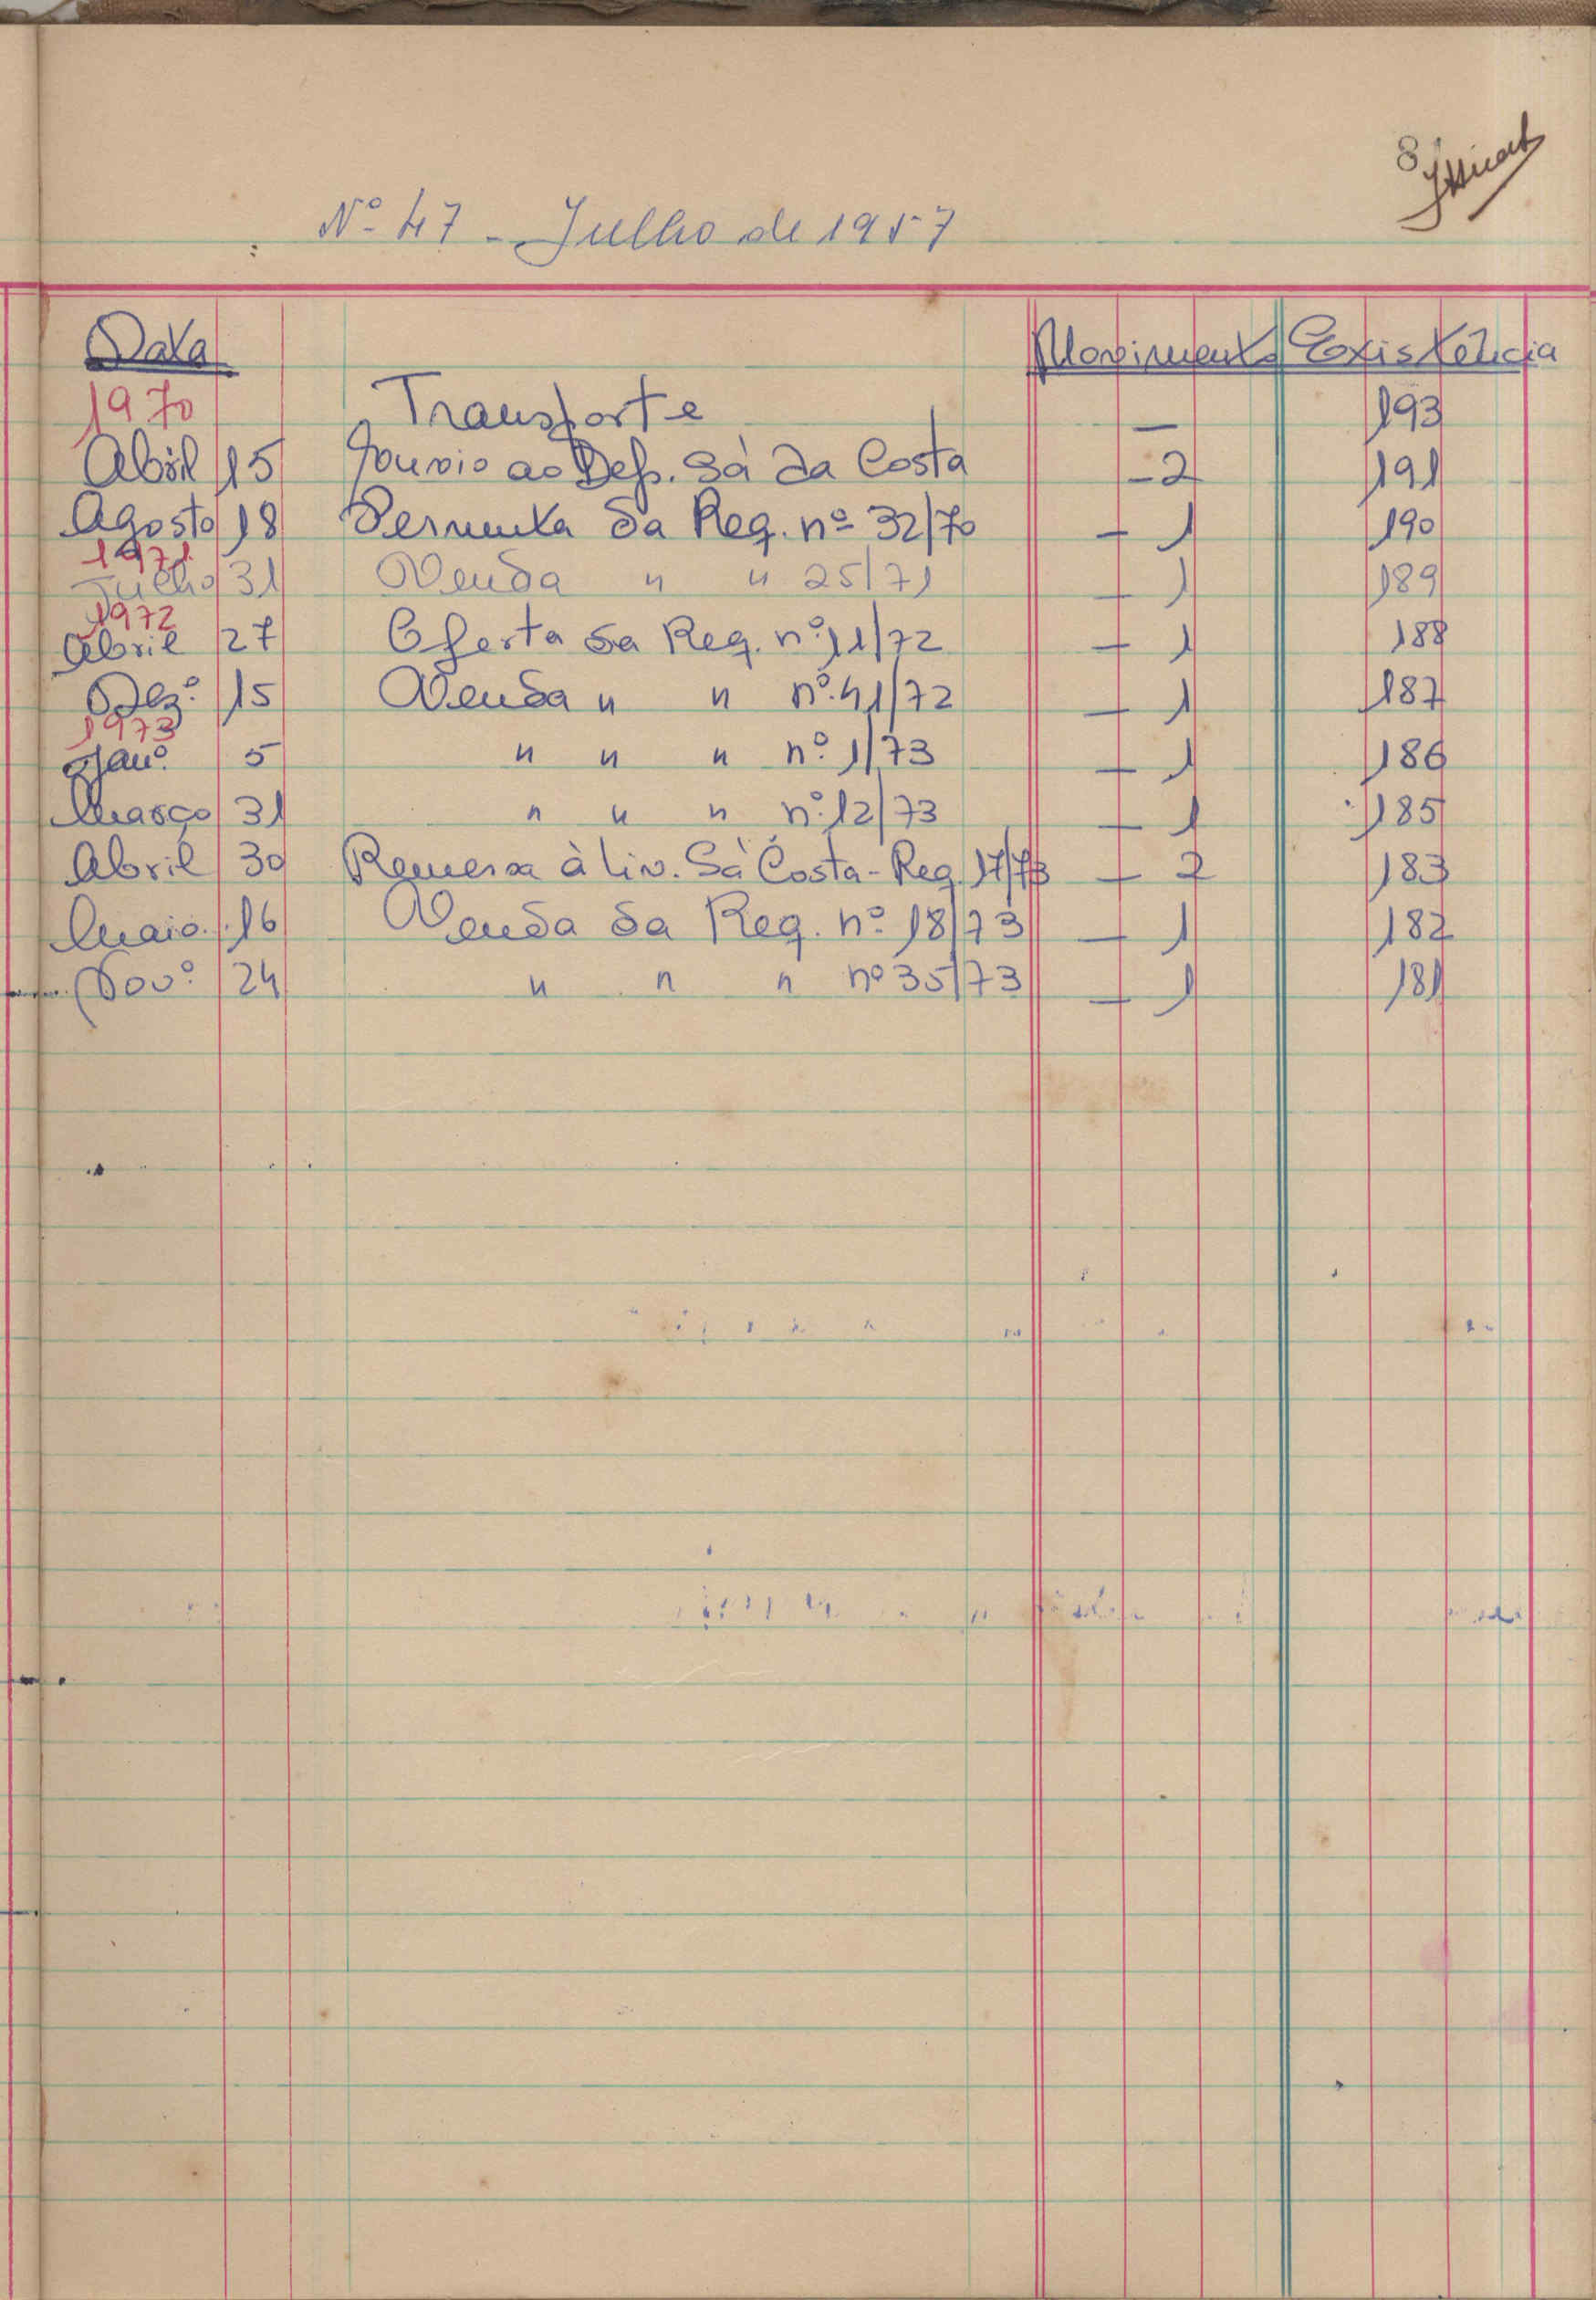 8
Nº 47 - Julho de 1957
Data Movimento Existência
1970 Transporte — 193
Abril 15 Envio ao Dep. Sá da Costa - 2 191
Agosto 18 Permuta da Req. nº 32/70 - 1 190
1971
Julho 31 Venda " " 25/71 - 1 189
1972
Abril 27 Oferta da Req. nº 11/72 - 1 188
Dezº 15 Venda " " nº 41/72 - 1 187
1973
Janº 5 " " " nº 1/73 - 1 186
Março 31 " " " nº 12/73 - 1 185
Abril 30 Remessa à Liv. Sá Costa - Req. 17/73 - 2 183
Maio 16 Venda da Req. nº 18/73 - 1 182
Novº 24 " " " nº 35/73 - 1 181